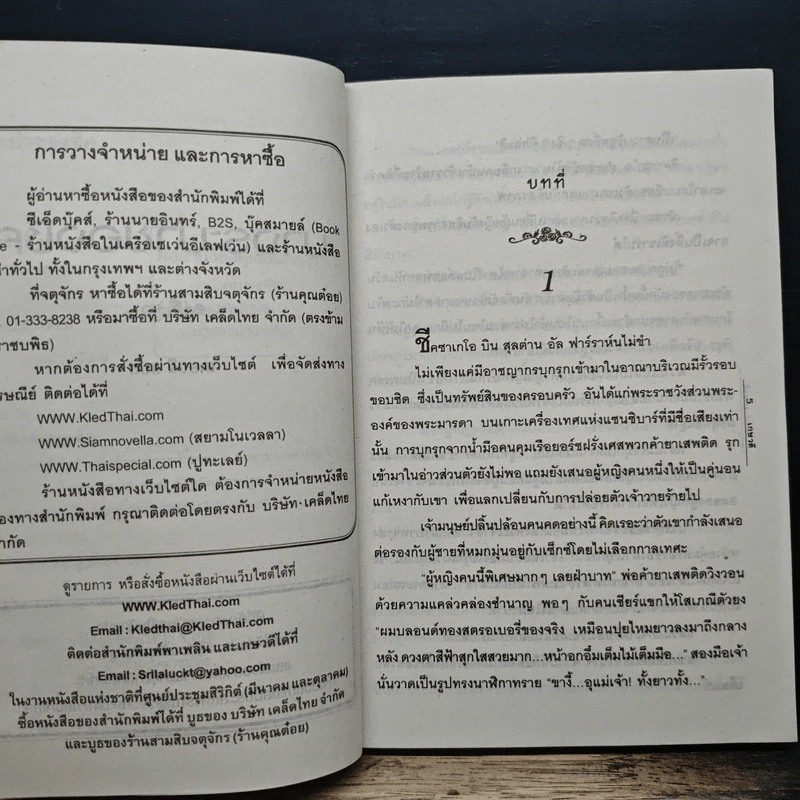 การวางจำหน่าย และการหาซื้อ
ผู้อ่านหาซื้อหนังสือของสำนักพิมพ์ได้ที่
ซีเอ็ดบุ๊คส์, ร้านนายอินทร์, B2S, บุ๊คสมายล์ (Book
e - ร้านหนังสือในเครือเซเว่นอีเลฟเว่น) และร้านหนังสือ
ทั่วไป ทั้งในกรุงเทพฯ และต่างจังหวัด
ที่จตุจักร หาซื้อได้ที่ร้านสามสิบจตุจักร (ร้านคุณต๋อย)
01-333-8238 หรือมาซื้อที่ บริษัท เคล็ดไทย จำกัด (ตรงข้าม
าชบพิธ)
หากต้องการสั่งซื้อผ่านทางเว็บไซต์ เพื่อจัดส่งทาง
รษณีย์ ติดต่อได้ที่
WWW.KledThai.com
WWW.Siamnovella.com (สยามโนเวลลา)
WWW.Thaispecial.com (ปูทะเลย์)
ร้านหนังสือทางเว็บไซต์ใด ต้องการจำหน่ายหนังสือ
องทางสำนักพิมพ์ กรุณาติดต่อโดยตรงกับ บริษัท เคล็ดไทย
ำกัด
ดูรายการ หรือสั่งซื้อหนังสือผ่านเว็บไซต์ได้ที่
WWW.KledThai.com
Email : Kledthai@KledThai.com
ติดต่อสำนักพิมพ์พาเพลิน และเกษวดีได้ที่
Email : Srilaluckt@yahoo.com
ในงานหนังสือแห่งชาติที่ศูนย์ประชุมสิริกิติ์ (มีนาคม และตุลาคม)
ซื้อหนังสือของสำนักพิมพ์ได้ที่ บูธของ บริษัท เคล็ดไทย จำกัด
และบูธของร้านสามสิบจตุจักร (ร้านคุณต๋อย)
บทที่
1
ชีคซาเกโอ บิน สุลต่าน อัล ฟาร์ราห์นไม่ขำ
ไม่เพียงแค่มีอาชญากรบุกรุกเข้ามาในอาณาบริเวณมีรั้วรอบ
ขอบชิด ซึ่งเป็นทรัพย์สินของครอบครัว อันได้แก่พระราชวังส่วนพระ-
องค์ของพระมารดา บนเกาะเครื่องเทศแห่งแซนซิบาร์ที่มีชื่อเสียงเท่า
นั้น การบุกรุกจากน้ำมือคนคุมเรือยอร์ชฝรั่งเศสพวกค้ายาเสพติด รุก
เข้ามาในอ่าวส่วนตัวยังไม่พอ แถมยังเสนอผู้หญิงคนหนึ่งให้เป็นคู่นอน
แก้เหงากับเขา เพื่อแลกเปลี่ยนกับการปล่อยตัวเจ้าวายร้ายไป
เจ้ามนุษย์ปลิ้นปล้อนคนคดอย่างนี้ คิดเรอะว่าตัวเขากำลังเสนอ
ต่อรองกับผู้ชายที่หมกมุ่นอยู่กับเซ็กซ์โดยไม่เลือกกาลเทศะ
“ผู้หญิงคนนี้พิเศษมากๆ เลยฝ่าบาท” พ่อค้ายาเสพติดวิงวอน
ด้วยความแคล่วคล่องชำนาญ พอๆ กับคนเชียร์แขกให้โสเภณีตัวยง
“ผมบลอนด์ทองสตรอเบอรี่ของจริง เหมือนปุยไหมยาวลงมาถึงกลาง
หลัง ดวงตาสีฟ้าสุกใสสวยมาก...หน้าอกอึ๋มเต็มไม้เต็มมือ...” สองมือเจ้า
นั่นวาดเป็นรูปทรงนาฬิกาทราย “ขางี้...อุแม่เจ้า! ทั้งยาวทั้ง...”
5
เกษวดี